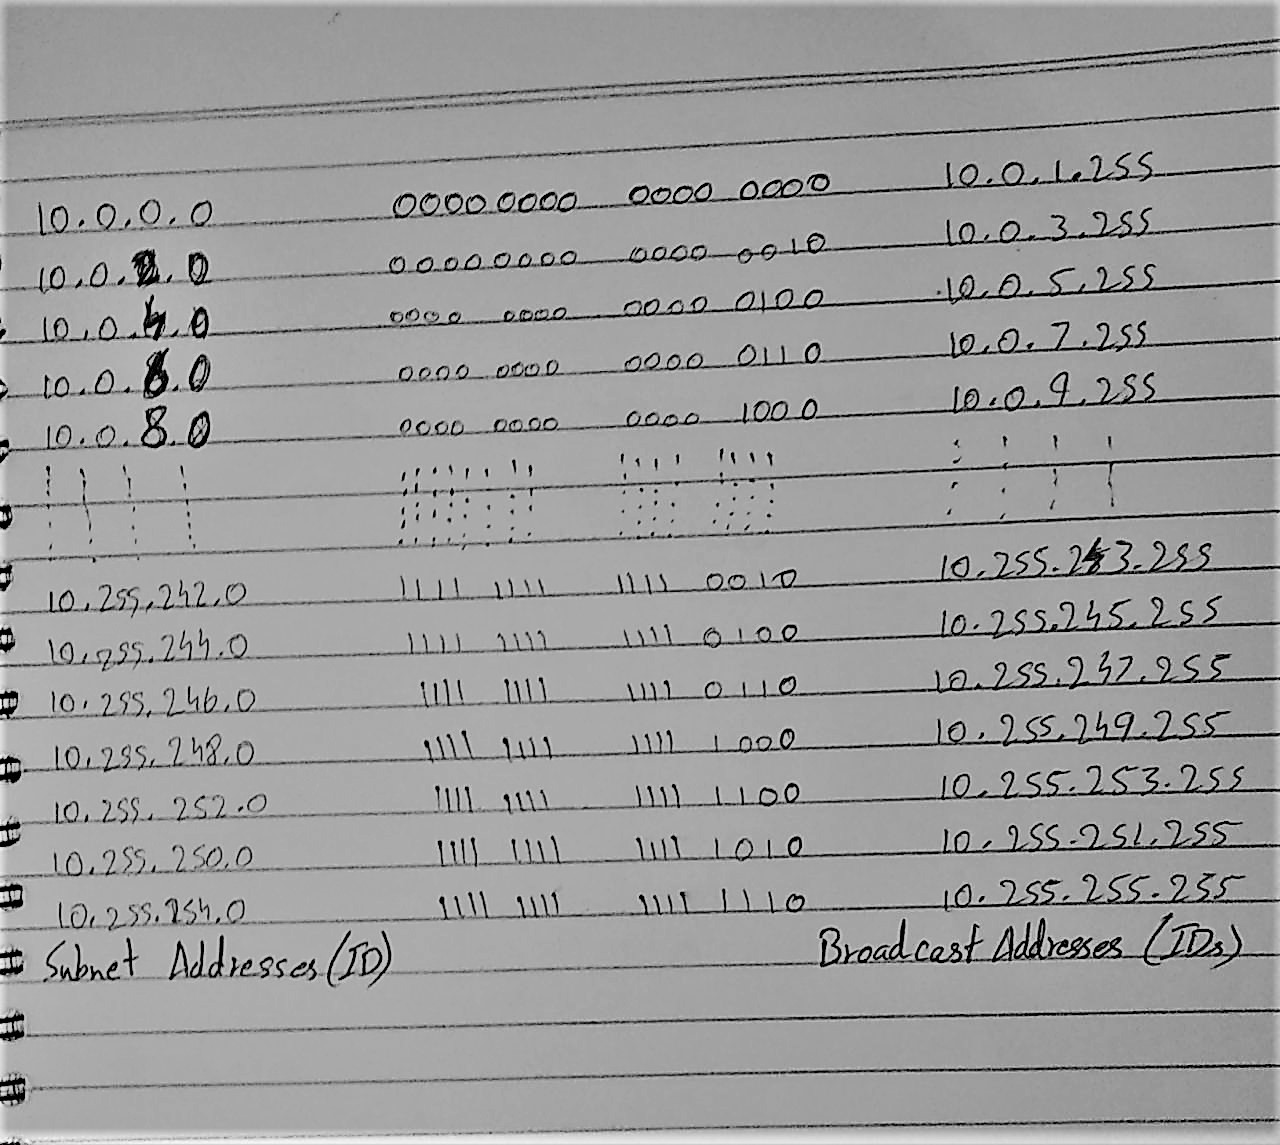 10.0.0.0 0000 0000 0000 0000 10.0.1.255
10.0.2.0 0000 0000 0000 0010 10.0.3.255
10.0.4.0 0000 0000 0000 0100 10.0.5.255
10.0.6.0 0000 0000 0000 0110 10.0.7.255
10.0.8.0 0000 0000 0000 1000 10.0.9.255
10.255.242.0 1111 1111 1111 0010 10.255.243.255
10.255.244.0 1111 1111 1111 0100 10.255.245.255
10.255.246.0 1111 1111 1111 0110 10.255.247.255
10.255.248.0 1111 1111 1111 1000 10.255.249.255
10.255.252.0 1111 1111 1111 1100 10.255.253.255
10.255.250.0 1111 1111 1111 1010 10.255.251.255
10.255.254.0 1111 1111 1111 1110 10.255.255.255
Subnet Addresses (ID) Broadcast Addresses (IDs)